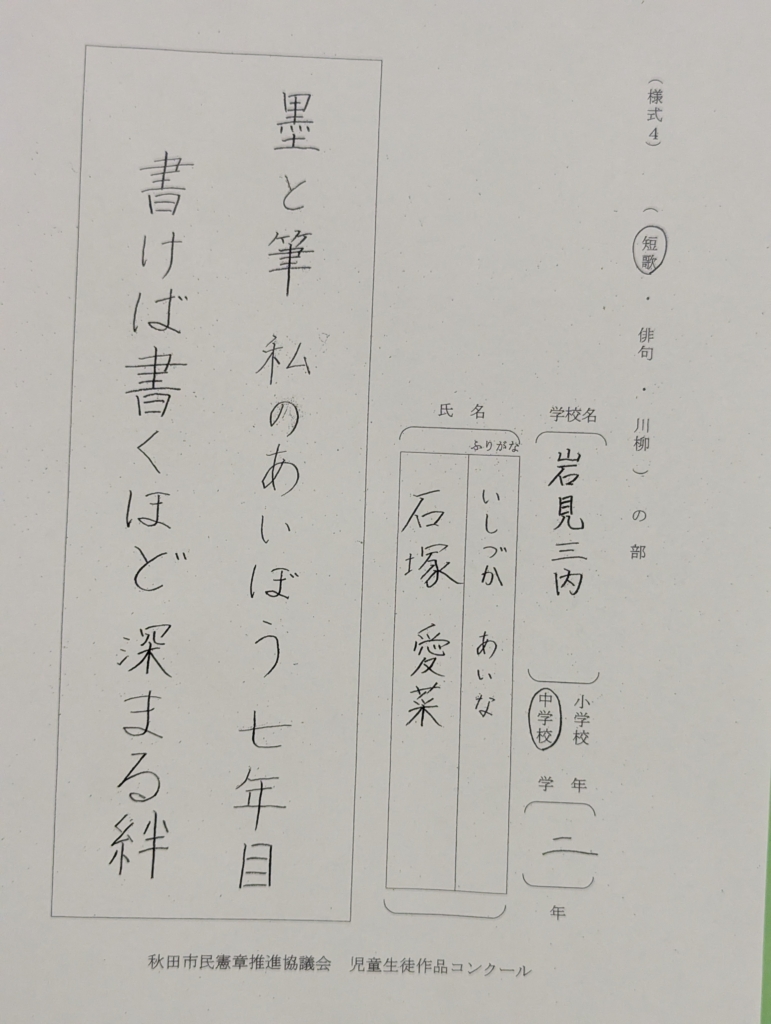 （様式４）　（短歌・俳句・川柳）の部
学校名
岩見三内
小学校
中学校
学年
二
年
氏名
ふりがな
いしづか　あいな
石塚　愛菜
墨と筆　私のあいぼう　七年目
書けば書くほど　深まる絆
秋田市民憲章推進協議会　児童生徒作品コンクール